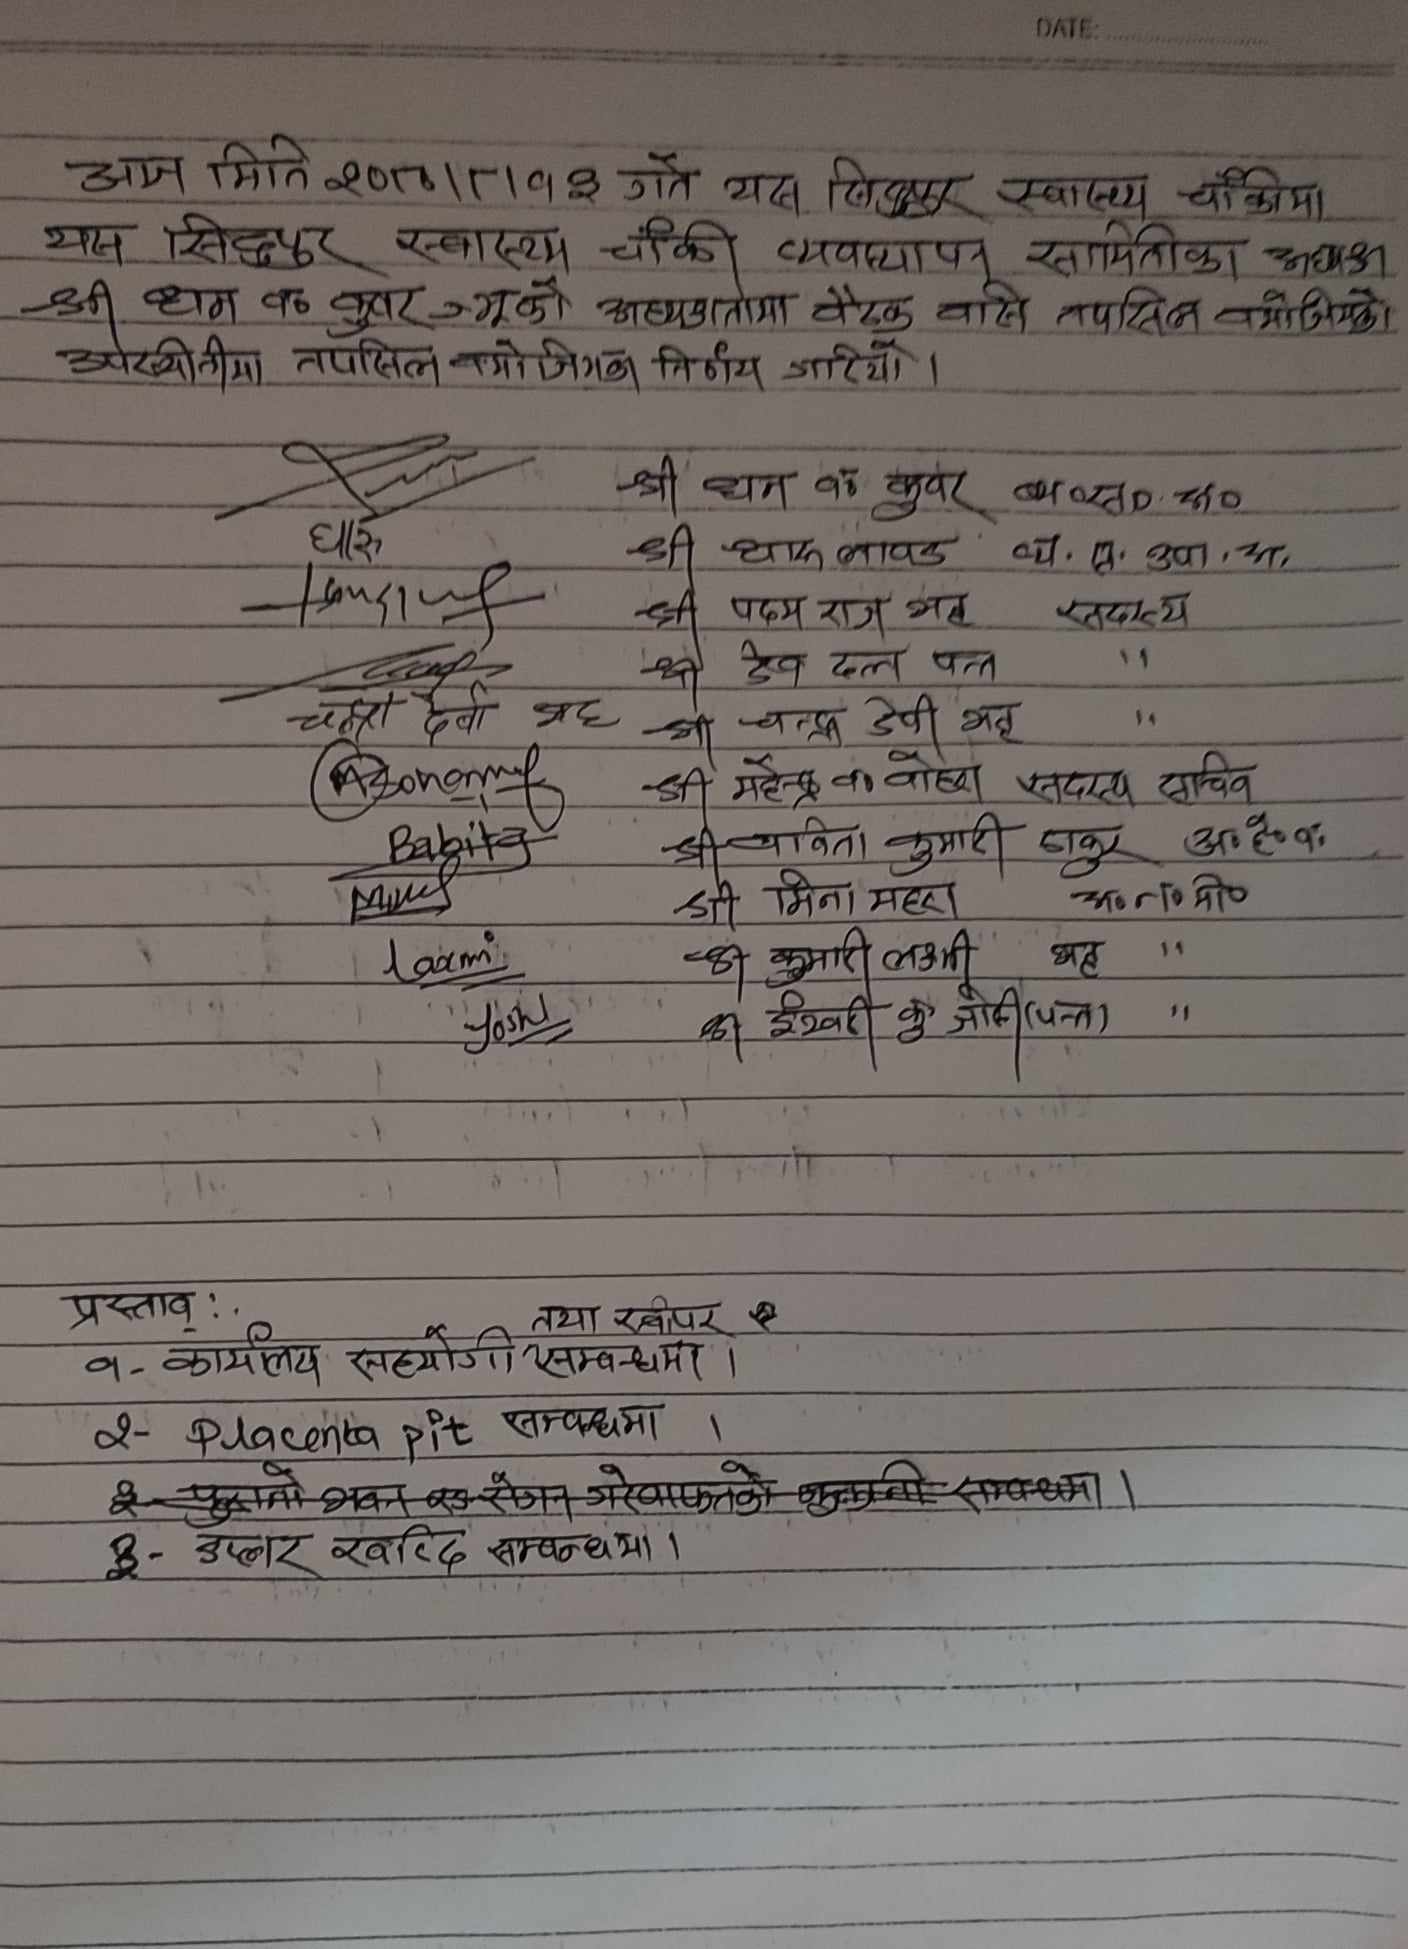 DATE:
आज मिति २०८१।८।१३ गते यस सिद्धपुर स्वास्थ्य चौकीमा
यस सिद्धपुर स्वास्थ्य चौकी व्यवस्थापन समितीका अध्यक्ष
श्री धन ब० कुवर ज्यूको अध्यक्षतामा बैठक बसि तपसिल बमोजिमको
उपस्थीतीमा तपसिल बमोजिमका निर्णय गरियो।
श्री धन ब० कुवर व्य०स०.अ०
धारु श्री धारु लावड व्य. स. उपा. अ.
श्री पदम राज भट्ट सदस्य
श्री देव दत्त पन्त "
चन्द्रा देवी भट्ट श्री चन्द्रा देवी भट्ट "
श्री महेन्द्र ब० बोहरा सदस्य सचिव
Babita श्री बाविता कुमारी ठाकुर अ०हे०व०
श्री मिना महरा अ०न०मी०
Laxmi श्री कुमारी लक्ष्मी भट्ट "
Joshi श्री ईश्वरी कु जोशी(पन्त) "
प्रस्ताव :.
तथा स्वीपर
१- कार्यालय सहयोगी सम्बन्धमा।
२- Placenta pit सम्बन्धमा ।
भवन सम्बन्धमा।
३- डप्लर खरिद सम्बन्धमा।